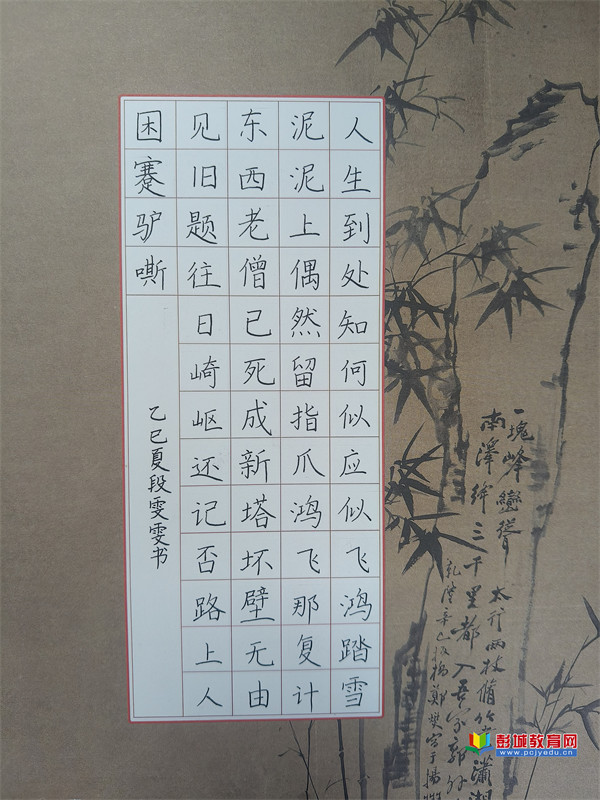 人生到处知何似应似飞鸿踏雪
泥泥上偶然留指爪鸿飞那复计
东西老僧已死成新塔坏壁无由
见旧题往日崎岖还记否路上人
困蹇驴嘶
乙巳夏段雯雯书
一塊峰巒聳太行兩枝脩竹
三千里都入吾家郭外
乾隆辛巳板橋鄭燮写于揚州
彭城教育网
www.pcjyedu.cn